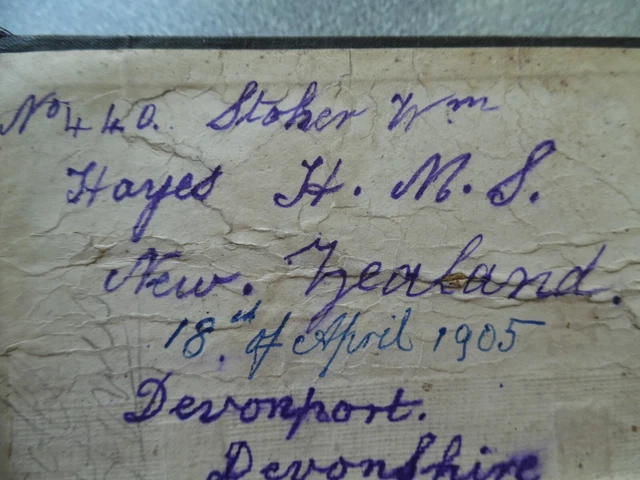 No 440. Stoker Wm
Hayes H. M. S.
New. Zealand.
18.th of April 1905
Devonport.
Devonshire